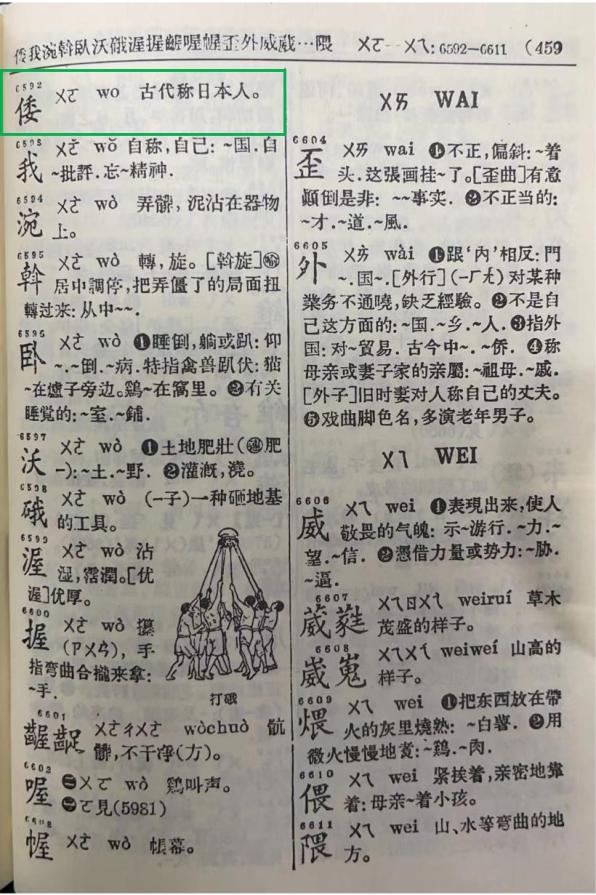 倭我涴斡臥沃硪渥握齷喔幄歪外威葳…隈 ㄨㄛ—ㄨㄟ: 6592—6611 (459
6592
倭 ㄨㄛ wo 古代称日本人。
6593
我 ㄨㄛˇ wǒ 自称,自己: ~国.自
~批評.忘~精神.
6594
涴 ㄨㄛˋ wò 弄髒, 泥沾在器物
上。
6595
斡 ㄨㄛˋ wò 轉,旋。[斡旋]
居中調停,把弄僵了的局面扭
轉过来: 从中~~.
6596
卧 ㄨㄛˋ wò ❶睡倒,躺或趴: 仰
~.~倒.~病.特指禽兽趴伏: 猫
~在爐子旁边。鷄~在窩里。❷有关
睡覚的: ~室.~鋪.
6597
沃 ㄨㄛˋ wò ❶土地肥壯(肥
—): ~土.~野. ❷灌漑,澆。
6598
硪 ㄨㄛˋ wò (—子)一种砸地基
的工具。
6599
渥 ㄨㄛˋ wò 沾
湿,霑潤。[优
渥]优厚。
6600
握 ㄨㄛˋ wò 攥
(ㄗㄨㄢˋ), 手
指弯曲合攏来拿:
~手.
打硪
6601
齷齪 ㄨㄛˋㄔㄨㄛˋ wòchuò 骯
髒,不干凈(方)。
6602
喔 ㊁ㄨㄛ wo 鷄叫声。
㊀ㄛ見(5981)
幄 ㄨㄛˋ wò 帳幕。
ㄨㄞ WAI
6604
歪 ㄨㄞ wai ❶不正,偏斜: ~着
头.这張画挂~了。[歪曲]有意
顚倒是非: ~~事实. ❷不正当的:
~才.~道.~風.
6605
外 ㄨㄞˋ wài ❶跟‘內’相反: 門
~.国~.[外行](—ㄏㄤˊ)对某种
業务不通曉,缺乏經驗。❷不是自
己这方面的: ~国.~乡.~人. ❸指外
国: 对~貿易. 古今中~.~侨. ❹称
母亲或妻子家的亲屬: ~祖母.~戚.
[外子]旧时妻对人称自己的丈夫。
❺戏曲脚色名,多演老年男子。
ㄨㄟ WEI
6606
威 ㄨㄟ wei ❶表現出来,使人
敬畏的气魄: 示~游行.~力.~
望.~信. ❷憑借力量或势力: ~胁.
~逼.
6607
葳蕤 ㄨㄟㄖㄨㄟˊ weiruí 草木
茂盛的样子。
6608
崴嵬 ㄨㄟㄨㄟˊ weiweí 山高的
样子。
6609
煨 ㄨㄟ wei ❶把东西放在帶
火的灰里燒熟: ~白薯. ❷用
微火慢慢地煑: ~鷄.~肉.
6610
偎 ㄨㄟ wei 紧挨着,亲密地靠
着: 母亲~着小孩。
6611
隈 ㄨㄟ wei 山、水等弯曲的地
方。